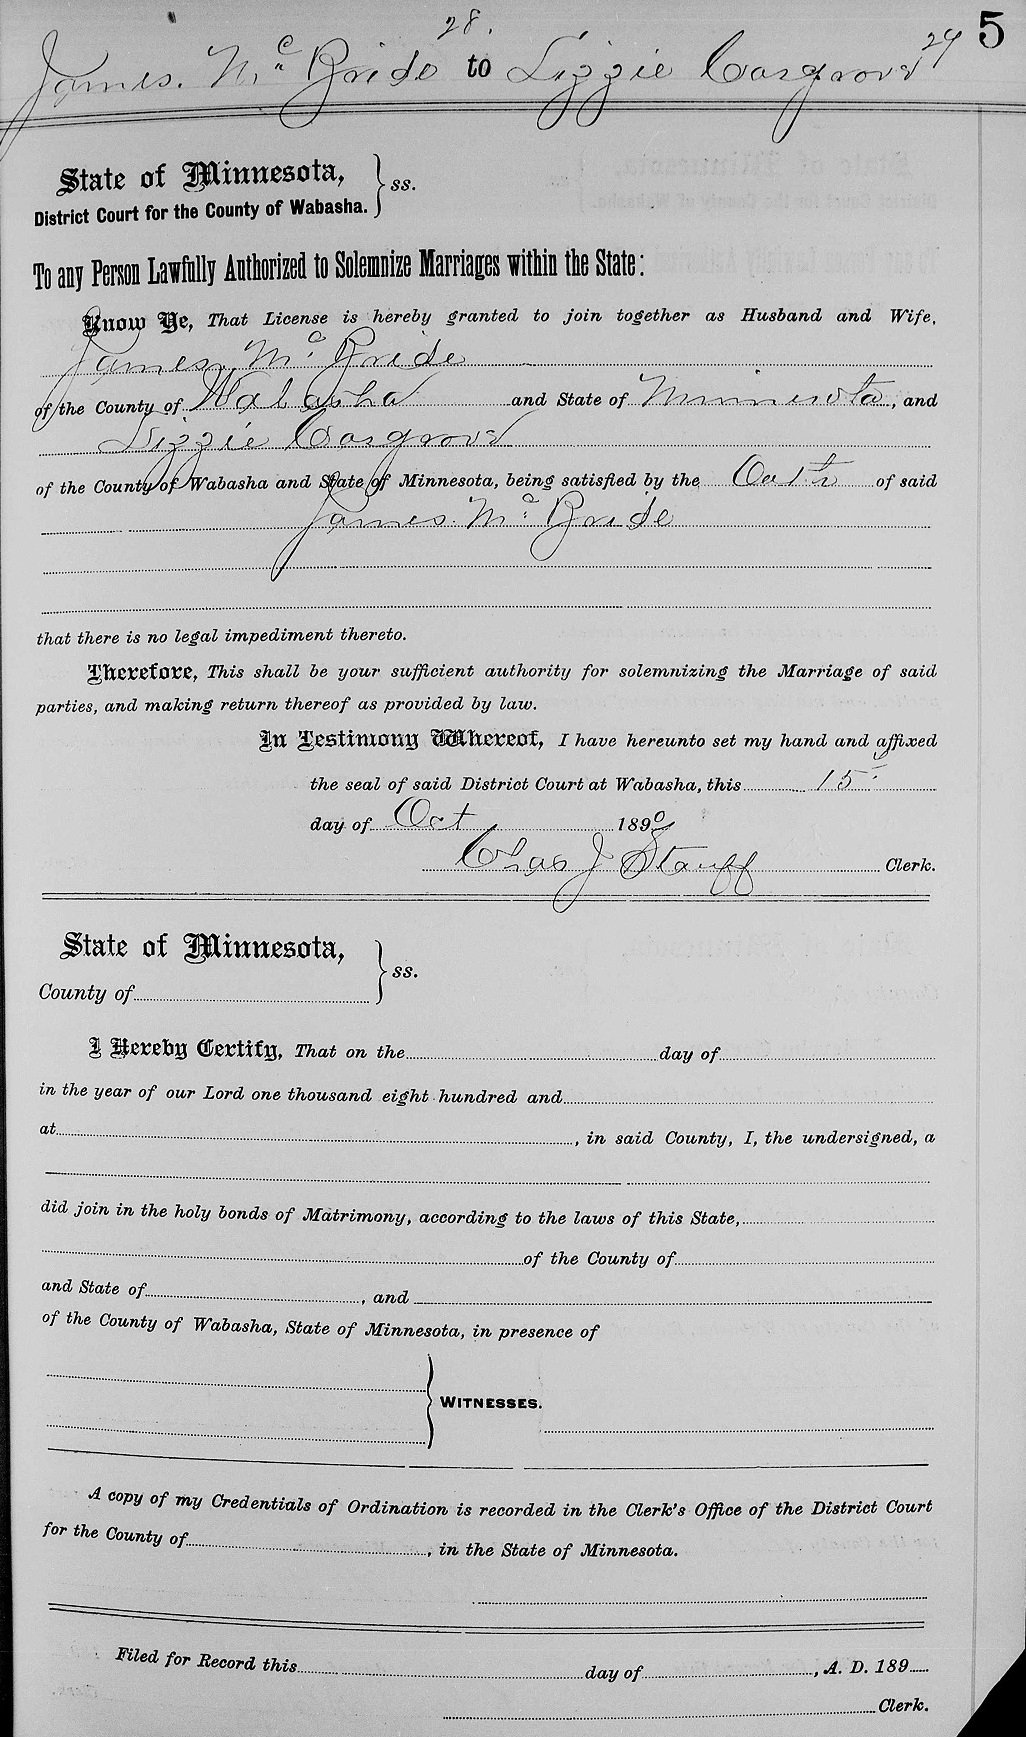 28. 5
James. Mc Bride to Lizzie Cosgrove 24
State of Minnesota, } ss.
District Court for the County of Wabasha.
To any Person Lawfully Authorized to Solemnize Marriages within the State:
Know Ye, That License is hereby granted to join together as Husband and Wife,
James. Mc Bride
of the County of Wabasha and State of Minnesota, and
Lizzie Cosgrove
of the County of Wabasha and State of Minnesota, being satisfied by the Oath of said
James. Mc Bride
that there is no legal impediment thereto.
Therefore, This shall be your sufficient authority for solemnizing the Marriage of said
parties, and making return thereof as provided by law.
In Testimony Whereof, I have hereunto set my hand and affixed
the seal of said District Court at Wabasha, this 15
day of Oct 1890
Chas J Stauff Clerk.
State of Minnesota, } ss.
County of
I Hereby Certify, That on the day of
in the year of our Lord one thousand eight hundred and
at , in said County, I, the undersigned, a
did join in the holy bonds of Matrimony, according to the laws of this State,
of the County of
and State of , and
of the County of Wabasha, State of Minnesota, in presence of
WITNESSES.
A copy of my Credentials of Ordination is recorded in the Clerk's Office of the District Court
for the County of , in the State of Minnesota.
Filed for Record this day of , A. D. 189
Clerk.